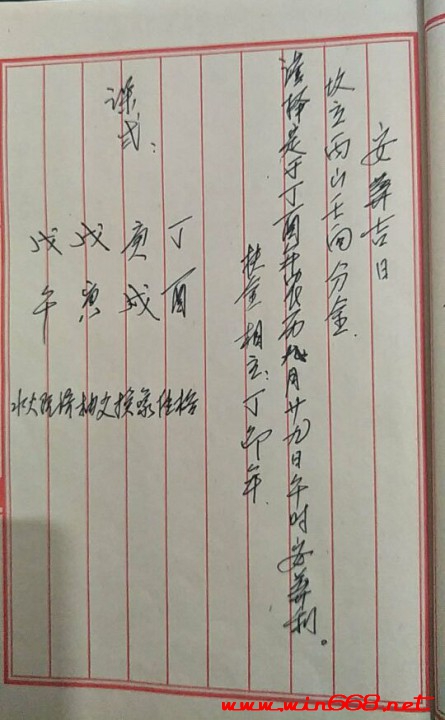 安葬吉日
坟立丙山壬向分金
谨择是于丁酉年农历九月廿九日午时安葬利。
扶金相主：丁卯年
课式：
丁 庚 戊 戊
酉 戌 寅 午
水火既济
www.win668.net